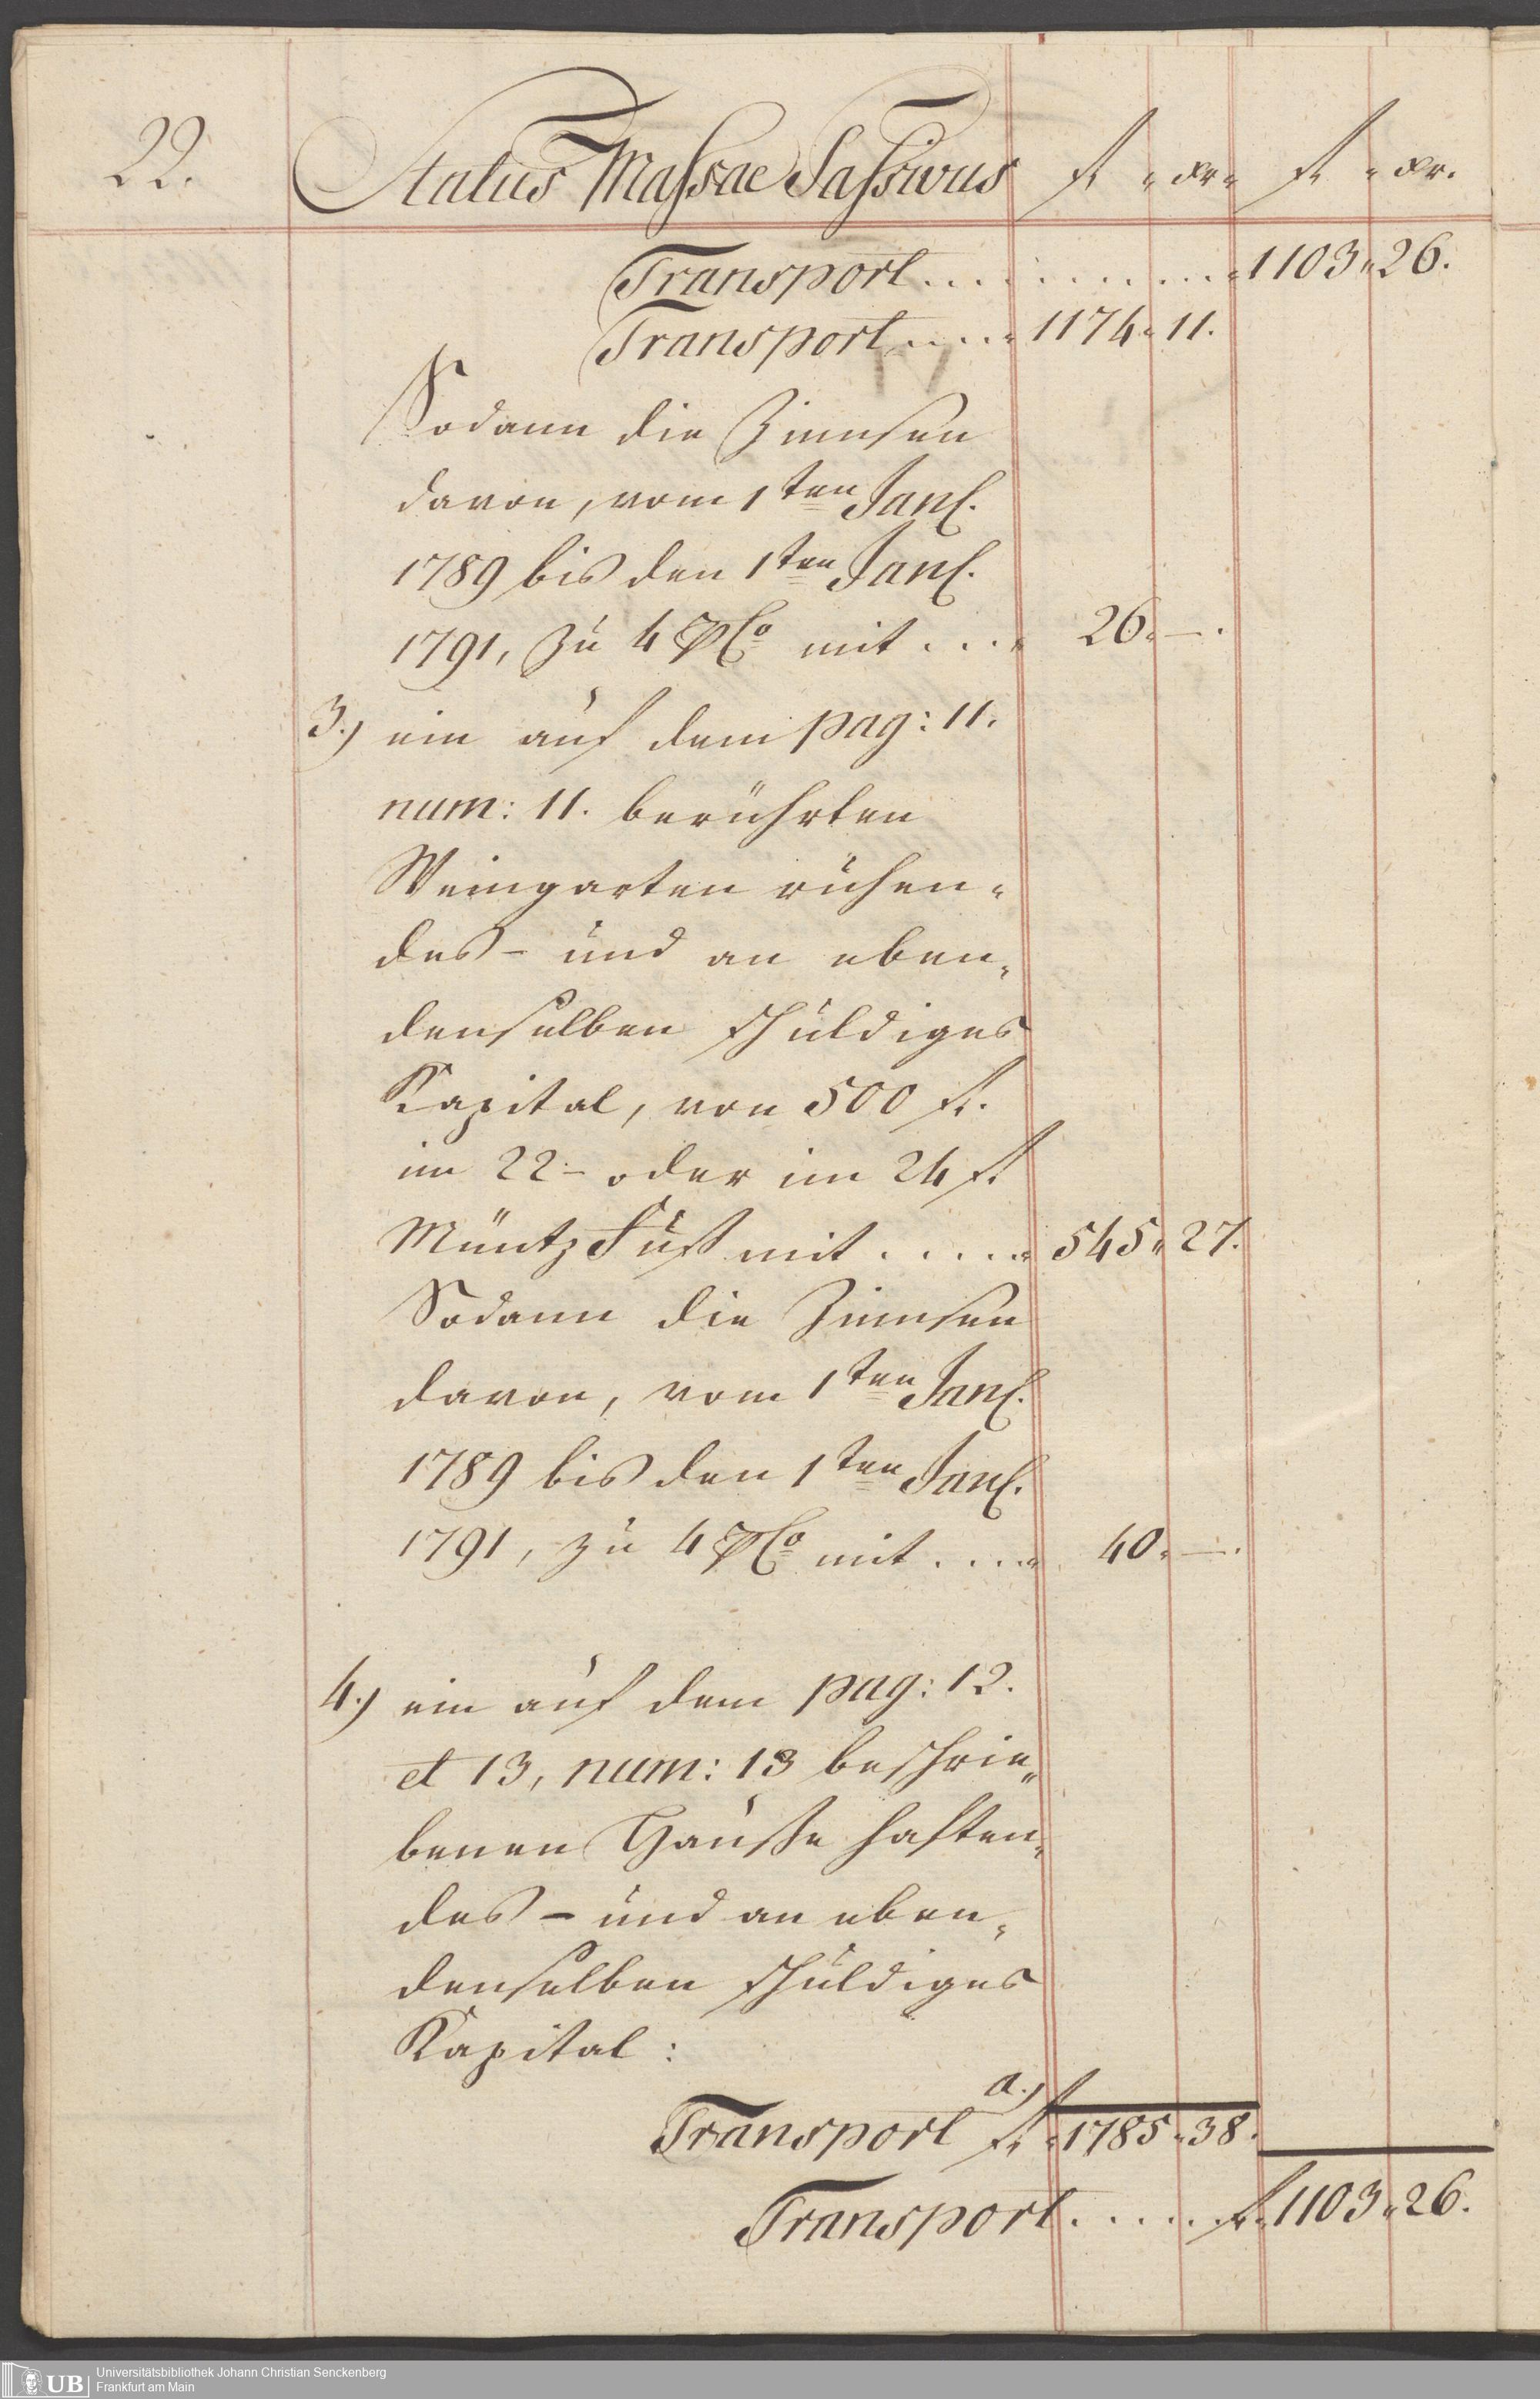 22.
Status Massae Passivus fl xr fl xr.
Transport . . . . . . . . . . 1103 26.
Transport . . . . 1174 11.
Sodann die Zinnsen
davon, vom 1ten Jan.
1789 bis den 1ten Jan.
1791, zu 4 pCo mit . . . . 26. —.
3.) ein auf dem pag: 11.
num: 11. berührten
Weingarten ruhen-
des - und an eben-
denselben schuldiges
Kapital, von 500 fl.
im 22 - oder im 24 fl
Müntz Fuß mit . . . . . 545 27.
Sodann die Zinnsen
davon, vom 1ten Jan.
1789 bis den 1ten Jan.
1791, zu 4 pCo mit . . . . 40. —.
4.) ein auf dem pag: 12.
et 13, num: 13 beschrie-
benen Hauße haften-
des - und an eben-
denselben schuldiges
Kapital:
a.)
Transport fl 1785 38.
Transport . . . . . . fl 1103 26.
UB Universitätsbibliothek Johann Christian Senckenberg
Frankfurt am Main